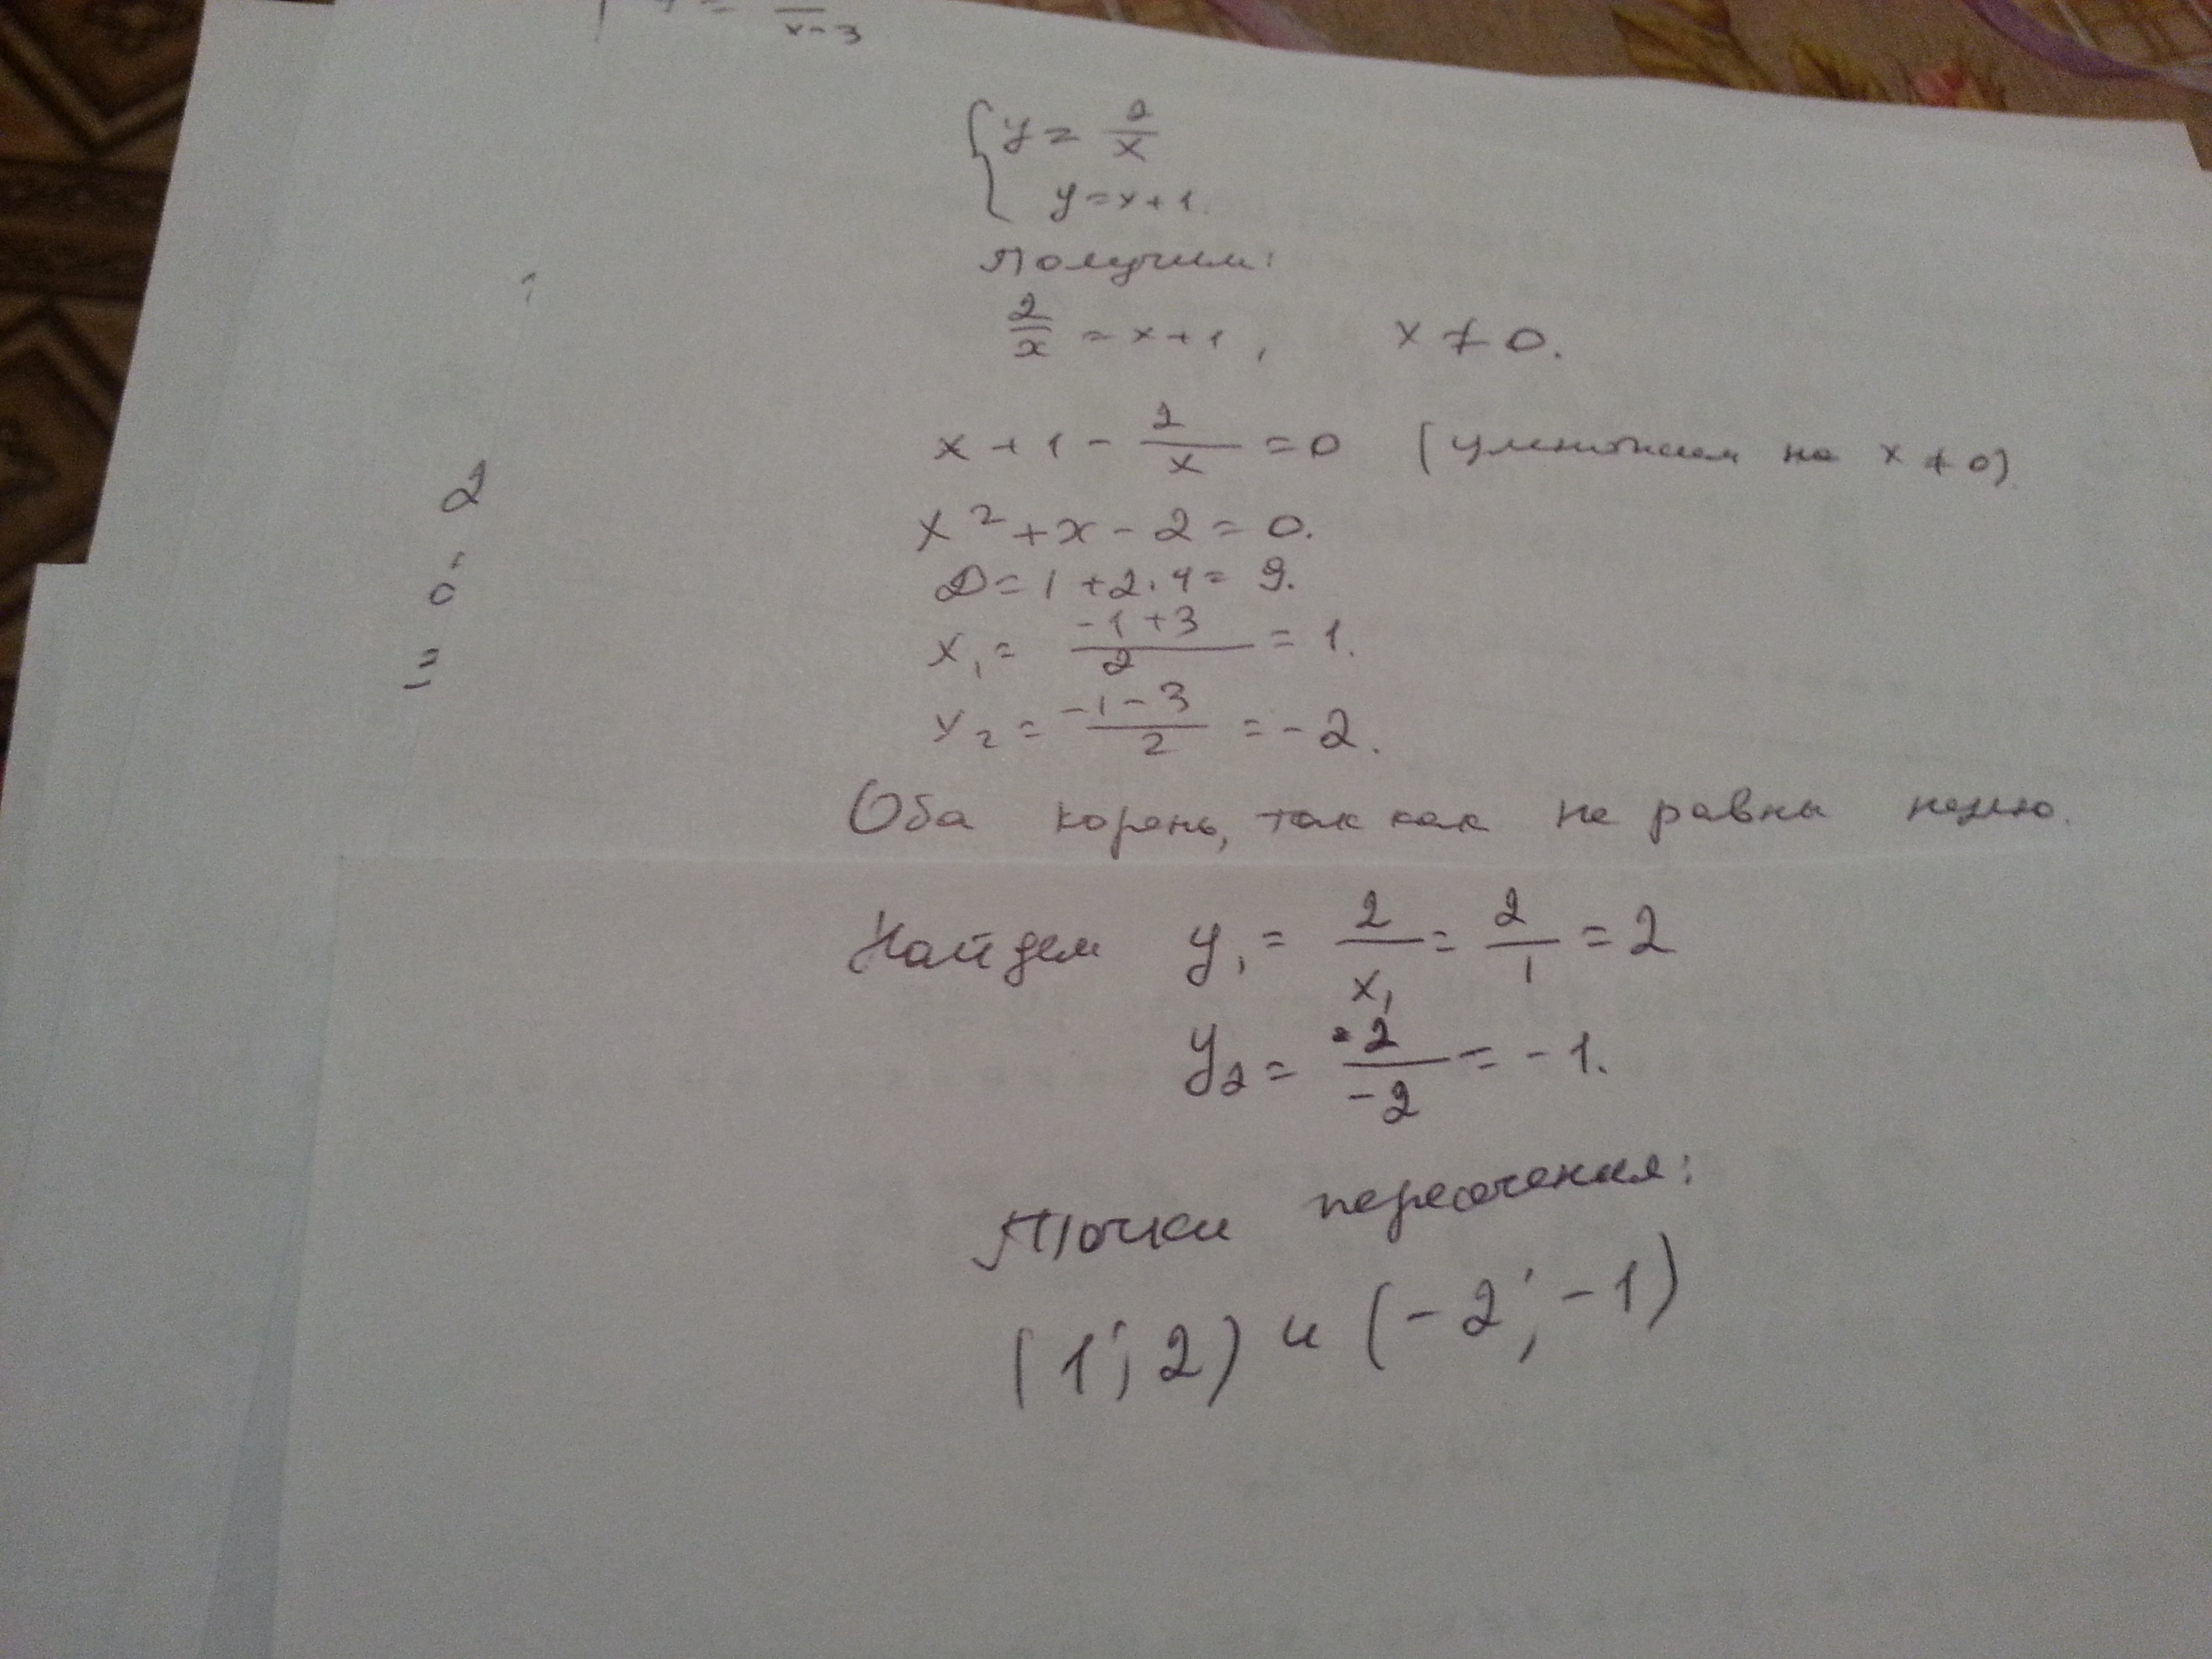 x-3
{ y = 2/x
y = x + 1.
Получим:
2/x = x + 1, x ≠ 0.
x + 1 - 2/x = 0 (умножаем на x ≠ 0)
x² + x - 2 = 0.
D = 1 + 2·4 = 9.
x₁ = (-1+3)/2 = 1.
x₂ = (-1-3)/2 = -2.
Оба корень, так как не равны нулю.
Найдем y₁ = 2/x₁ = 2/1 = 2
y₂ = 2/-2 = -1.
Точки пересечения:
(1; 2) и (-2; -1)